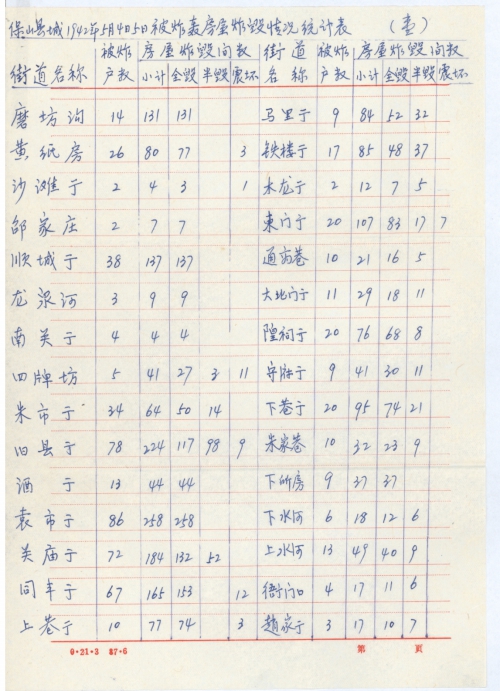 保山县城1942年5月4日5日被炸轰房屋炸毁情况统计表 (壹)
街道名称 被炸户数 房屋炸毁间数 街道名称 被炸户数 房屋炸毁间数
小计 全毁 半毁 震坏 小计 全毁 半毁 震坏
磨坊沟 14 131 131 马里于 9 84 52 32
黄纸房 26 80 77 3 铁楼于 17 85 48 37
沙滩于 2 4 3 1 木龙于 2 12 7 5
邵家庄 2 7 7 東门于 20 107 83 17 7
顺城于 38 137 137 通商巷 10 21 16 5
龙泉河 3 9 9 大北门于 11 29 18 11
南关于 4 4 4 隍祠于 20 76 68 8
四牌坊 5 41 27 3 11 守府于 9 41 30 11
朱市于 34 64 50 14 下巷于 20 95 74 21
旧县于 78 224 117 98 9 朱家巷 10 32 23 9
酒于 13 44 44 下所房 9 37 37
袁市于 86 258 258 下水河 6 18 12 6
关庙于 72 184 132 52 上水河 13 49 40 9
同丰于 67 165 153 12 衙门口 4 17 11 6
上巷于 10 77 74 3 趙家于 3 17 10 7
0·21·3 87·6 第 页